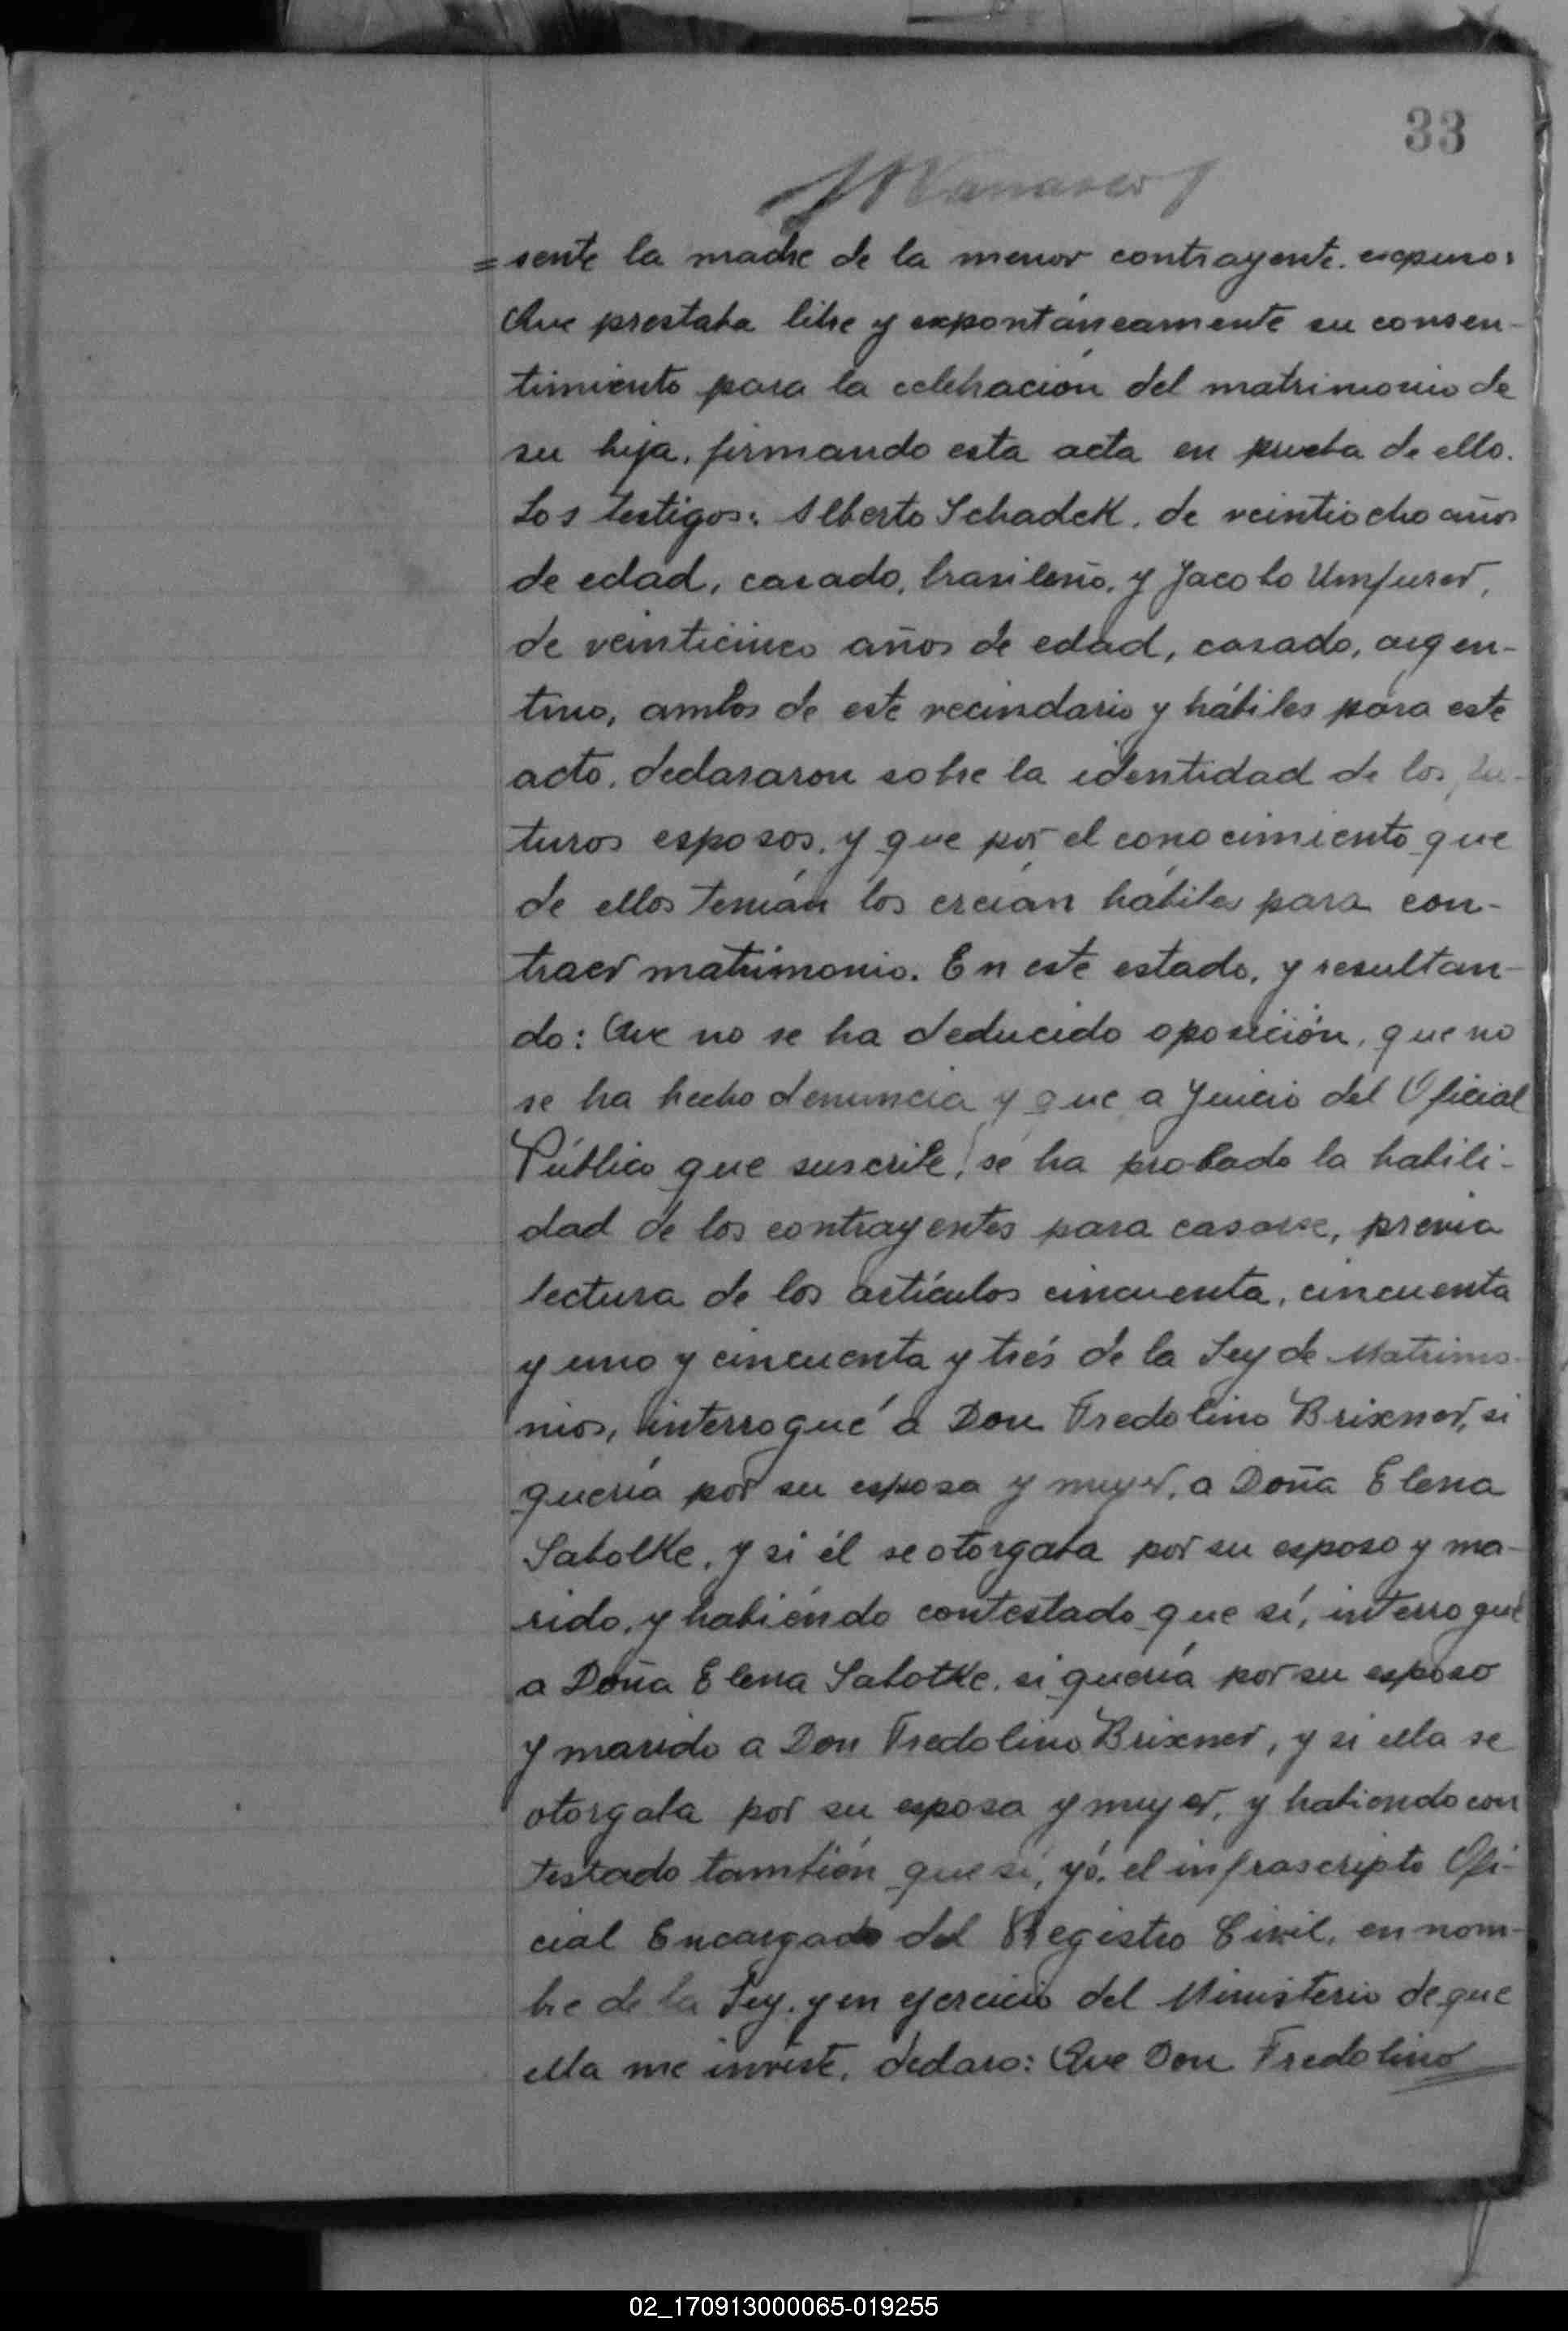 33
=sente la madre de la menor contrayente. expuso:
Que prestaba libre y expontáneamente su consen-
timiento para la celebración del matrimonio de
su hija, firmando esta acta en prueba de ello.
Los testigos: Alberto Schadek, de veintiocho años
de edad, casado, brasileño, y Jacobo Umfurer,
de veinticinco años de edad, casado, argen-
tino, ambos de este vecindario y hábiles para este
acto, declararon sobre la identidad de los fu-
turos esposos, y que por el conocimiento que
de ellos tenían los creían hábiles para con-
traer matrimonio. En este estado, y resultan-
do: Que no se ha deducido oposición, que no
se ha hecho denuncia y que a juicio del Oficial
Público que suscribe, se ha probado la habili-
dad de los contrayentes para casarse, previa
lectura de los artículos cincuenta, cincuenta
y uno y cincuenta y trés de la Ley de Matrimo-
nios, interrogué a Don Fredolino Brixner, si
quería por su esposa y mujer, a Doña Elena
Sabolke, y si él se otorgaba por su esposo y ma-
rido, y habiéndo contestado que sí, interrogué
a Doña Elena Sabotke, si quería por su esposo
y marido a Don Fredolino Brixner, y si ella se
otorgaba por su esposa y mujer, y habiendo con
testado también que sí, yó, el infrascripto Ofi-
cial Encargado del Registro Civil, en nom-
bre de la Ley, y en ejercicio del Ministerio de que
ella me inviste, declaro: Que Don Fredolino
02_170913000065-019255